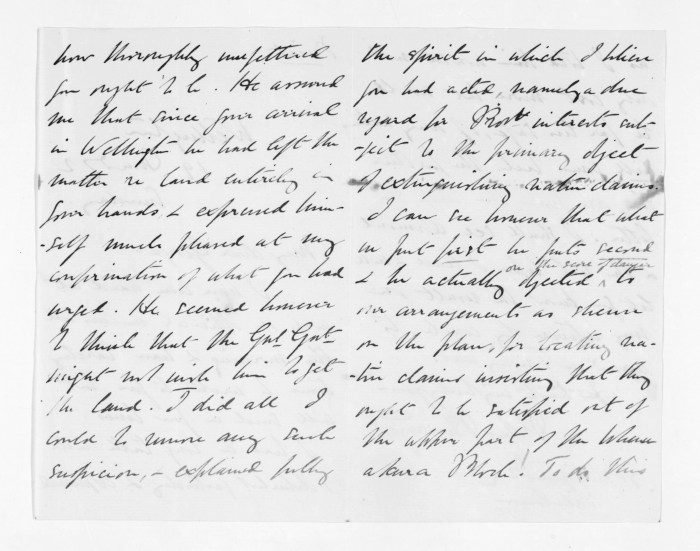 how thoroughly unfettered
you ought to be. He assured
me that since your arrival
in Wellington he had left the
matter re land entirely in
your hands & expressed him-
-self much pleased at my
confirmation of what you had
urged. He seemed however
to think that the Genl Govt
might not wish him to get
the land. I did all I
could to remove any such
suspicion, & explained fully
the spirit in which I believe
you had acted, namely a due
regard for Provl interests sub-
-ject to the primary object
of extinguishing native claims.
I can see however that what
we put first he puts second
on the score of danger
& he actually objected to
our arrangements as shewn
on the plan, for locating na-
-tive claims insisting that they
ought to be satisfied out of
the upper part of the Whare
akura Block! To do this